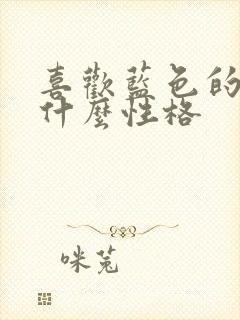 喜歡藍色的
什麼性格
咪菟